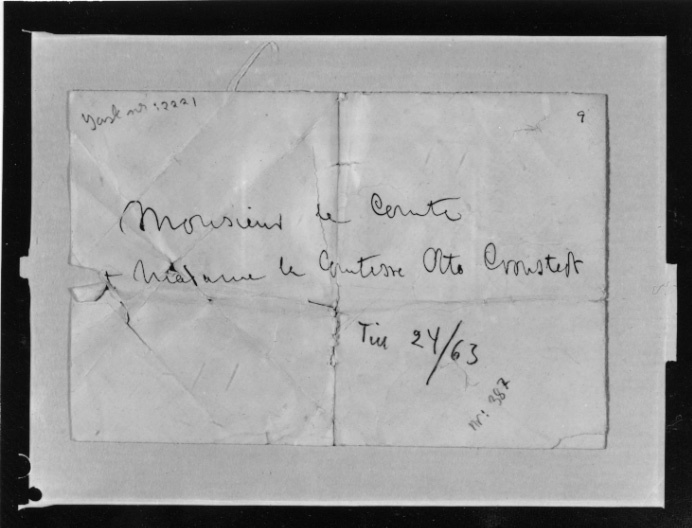 nr: 2221
9
Monsieur le Comte
+ Madame la Comtesse Otto Cronstedt
Till 24/63
nr: 387